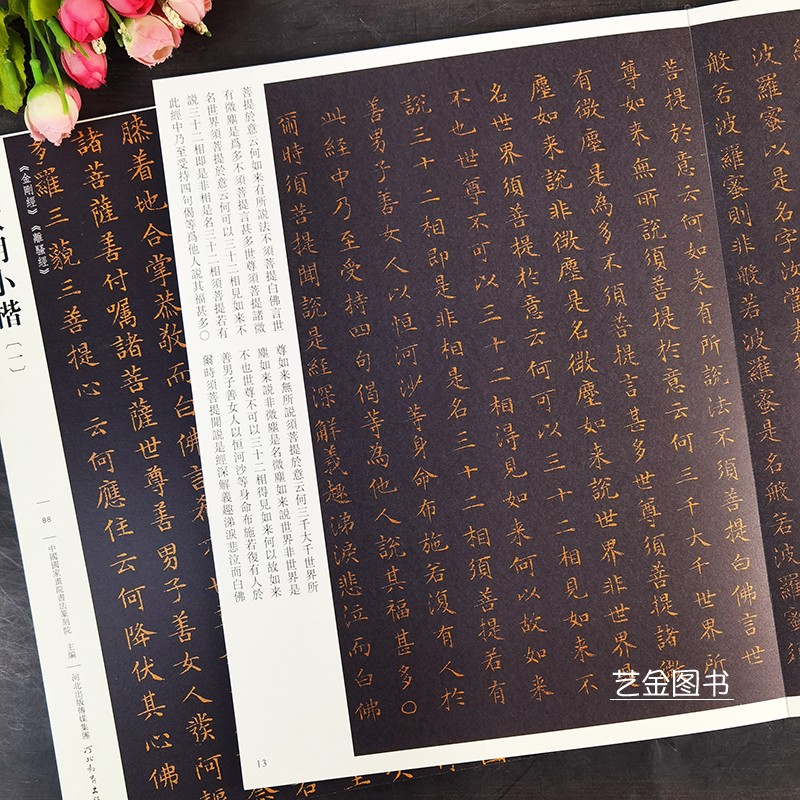 波羅蜜以是名字汝當
般若波羅蜜則非般若波羅蜜是名般若波羅蜜須
菩提於意云何如来有所說法不須菩提白佛言世
尊如来無所說須菩提於意云何三千大千世界所
有微塵是為多不須菩提言甚多世尊須菩提諸微
塵如来說非微塵是名微塵如来說世界非世界是
名世界須菩提於意云何可以三十二相見如来不
不也世尊不可以三十二相得見如来何以故如来
說三十二相即是非相是名三十二相須菩提若有
善男子善女人以恒河沙等身命布施若復有人於
此經中乃至受持四句偈等為他人說其福甚多〇
爾時須菩提聞說是經深解義趣涕淚悲泣而白佛
菩提於意云何如来有所説法不須菩提白佛言世
有微塵是爲多不須菩提言甚多世尊須菩提諸微
名世界須菩提於意云何可以三十二相見如来不
説三十二相即是非相是名三十二相須菩提若有
此經中乃至受持四句偈等爲他人説其福甚多〇
尊如来無所説須菩提於意云何三千大千世界所
塵如来説非微塵是名微塵如来説世界非世界是
不也世尊不可以三十二相得見如来何以故如来
善男子善女人以恒河沙等身命布施若復有人於
爾時須菩提聞説是經深解義趣涕淚悲泣而白佛
13
膝着地合掌恭敬而白佛言
諸菩薩善付囑諸菩薩世尊善男子善女人發阿耨
多羅三藐三菩提心云何應住云何降伏其心佛
《金剛經》《離騷經》
明小楷〔一〕
88
中國國家畫院書法篆刻院 主編
河北出版傳媒集團
艺金图书